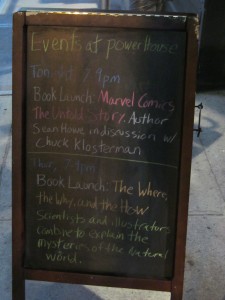 Events at powerHouse
7-9pm
Book Launch: Marvel Comics
The Untold Story. Author
Sean Howe in discussion w/
Chuck Klosterman
Thur, 7-9pm
Book Launch: The Where,
the Why, and the How
Scientists and illustrators
combine to explain the
mysteries of the natural
world.